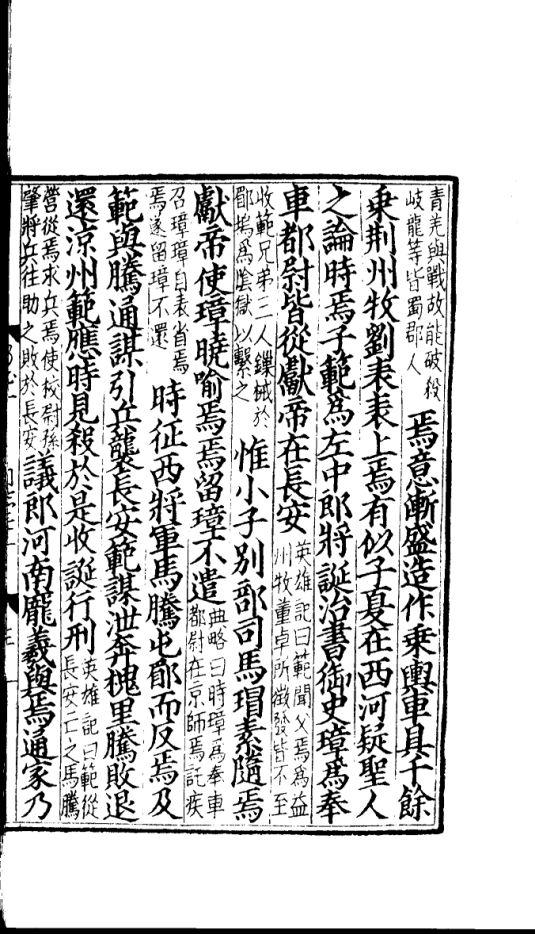 青羌與戰故能破殺
岐龍等皆蜀郡人
焉意漸盛造作乘輿車具千餘
乘荆州牧劉表表上焉有似子夏在西河疑聖人
之論時焉子範為左中郎將誕治書御史璋為奉
車都尉皆從獻帝在長安
英雄記曰範聞父焉為益
州牧董卓所徵發皆不至
收範兄弟三人鏁械於
郿塢為陰獄以繫之
惟小子別部司馬瑁素隨焉
獻帝使璋曉喻焉焉留璋不遣
典略曰時璋為奉車
都尉在京師焉託疾
召璋璋自表省焉
焉遂留璋不還
時征西將軍馬騰屯郿而反焉及
範與騰通謀引兵襲長安範謀泄奔槐里騰敗退
還涼州範應時見殺於是收誕行刑
英雄記曰範從
長安亡之馬騰
營從焉求兵焉使校尉孫
肇將兵往助之敗於長安
議郎河南龐羲與焉通家乃